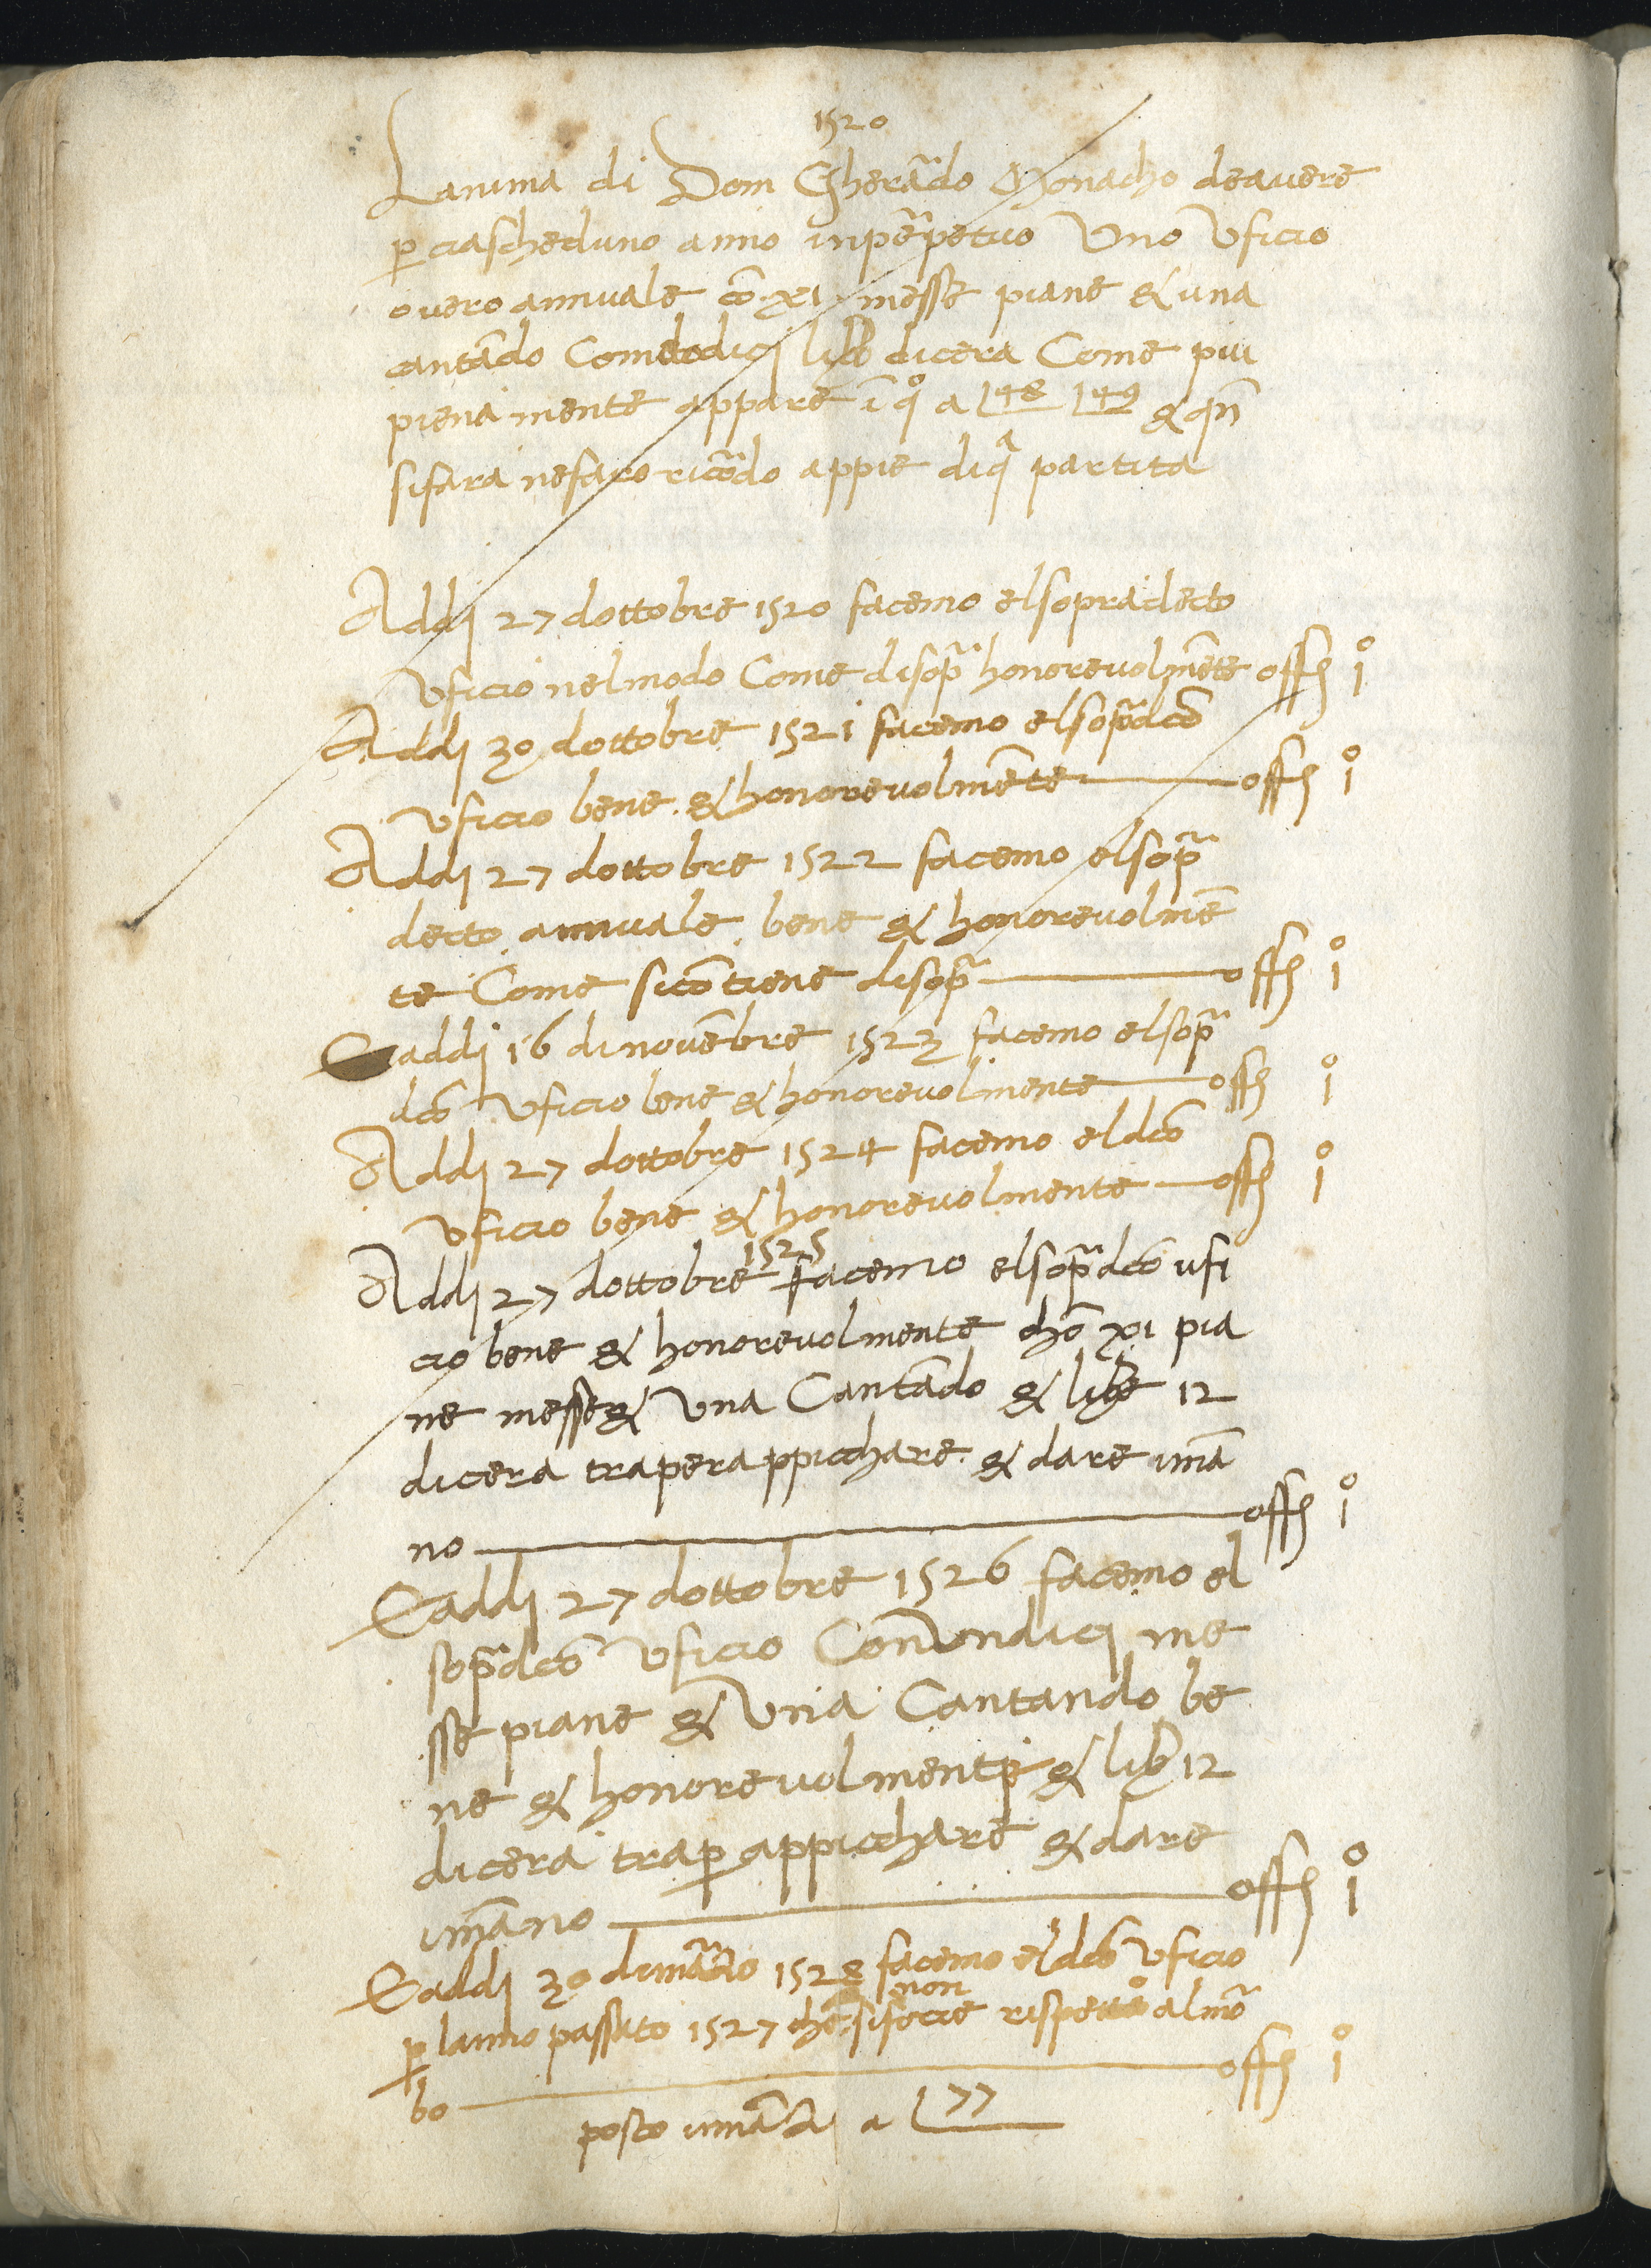 1520
Lanima di Dom Gherãdo Monacho deavere
p ciascheduno anno inpẽpetuo Uno Uficio
overo annuale cõ xi messe piane & una
cantãdo Comdodici libb dicera Come piu
pienamente appare ĩ qº a 148 149 & qñ
sifara nefaro ricõdo appie diqª partita
Addi 27 dottobre 1520 facemo elsopradecto
Uficio nelmodo Come disopª honorevolmẽte offi iº
Addi 30 dottobre 1521 facemo elsopªdcõ
Uficio bene & honorevolmẽte offi iº
Addi 27 dottobre 1522 facemo elsopª
decto annuale bene & honorevolmẽ
te Come sicõtiene disopª offi iº
Eaddi 16 dinovẽbre 1523 facemo elsopª
dcõ Uficio bene & honorevolmente offi iº
Addi 27 dottobre 1524 facemo eldcõ
Uficio bene & honorevolmente offi iº
Addi 27 dottobre 1525 facemo elsopªdcõ ufi
cio bene & honorevolmente chõ xi pia
ne messe & Una Cantãdo & libe 12
dicera traperappicchare & dare imã
no offi iº
Eaddi 27 dottobre 1526 facemo el
sopªdcõ Uficio Conundici me
sse piane & Una Cantando be
ne & honorevolmente & lib 12
dicera trap appicchare & dare
imãno offi iº
Eaddi 30 dimãzo 1528 facemo el dcõ Uficio
p lanno passato 1527 che non sifecie rispetto almõ
bo offi iº
posto innãzi a 177